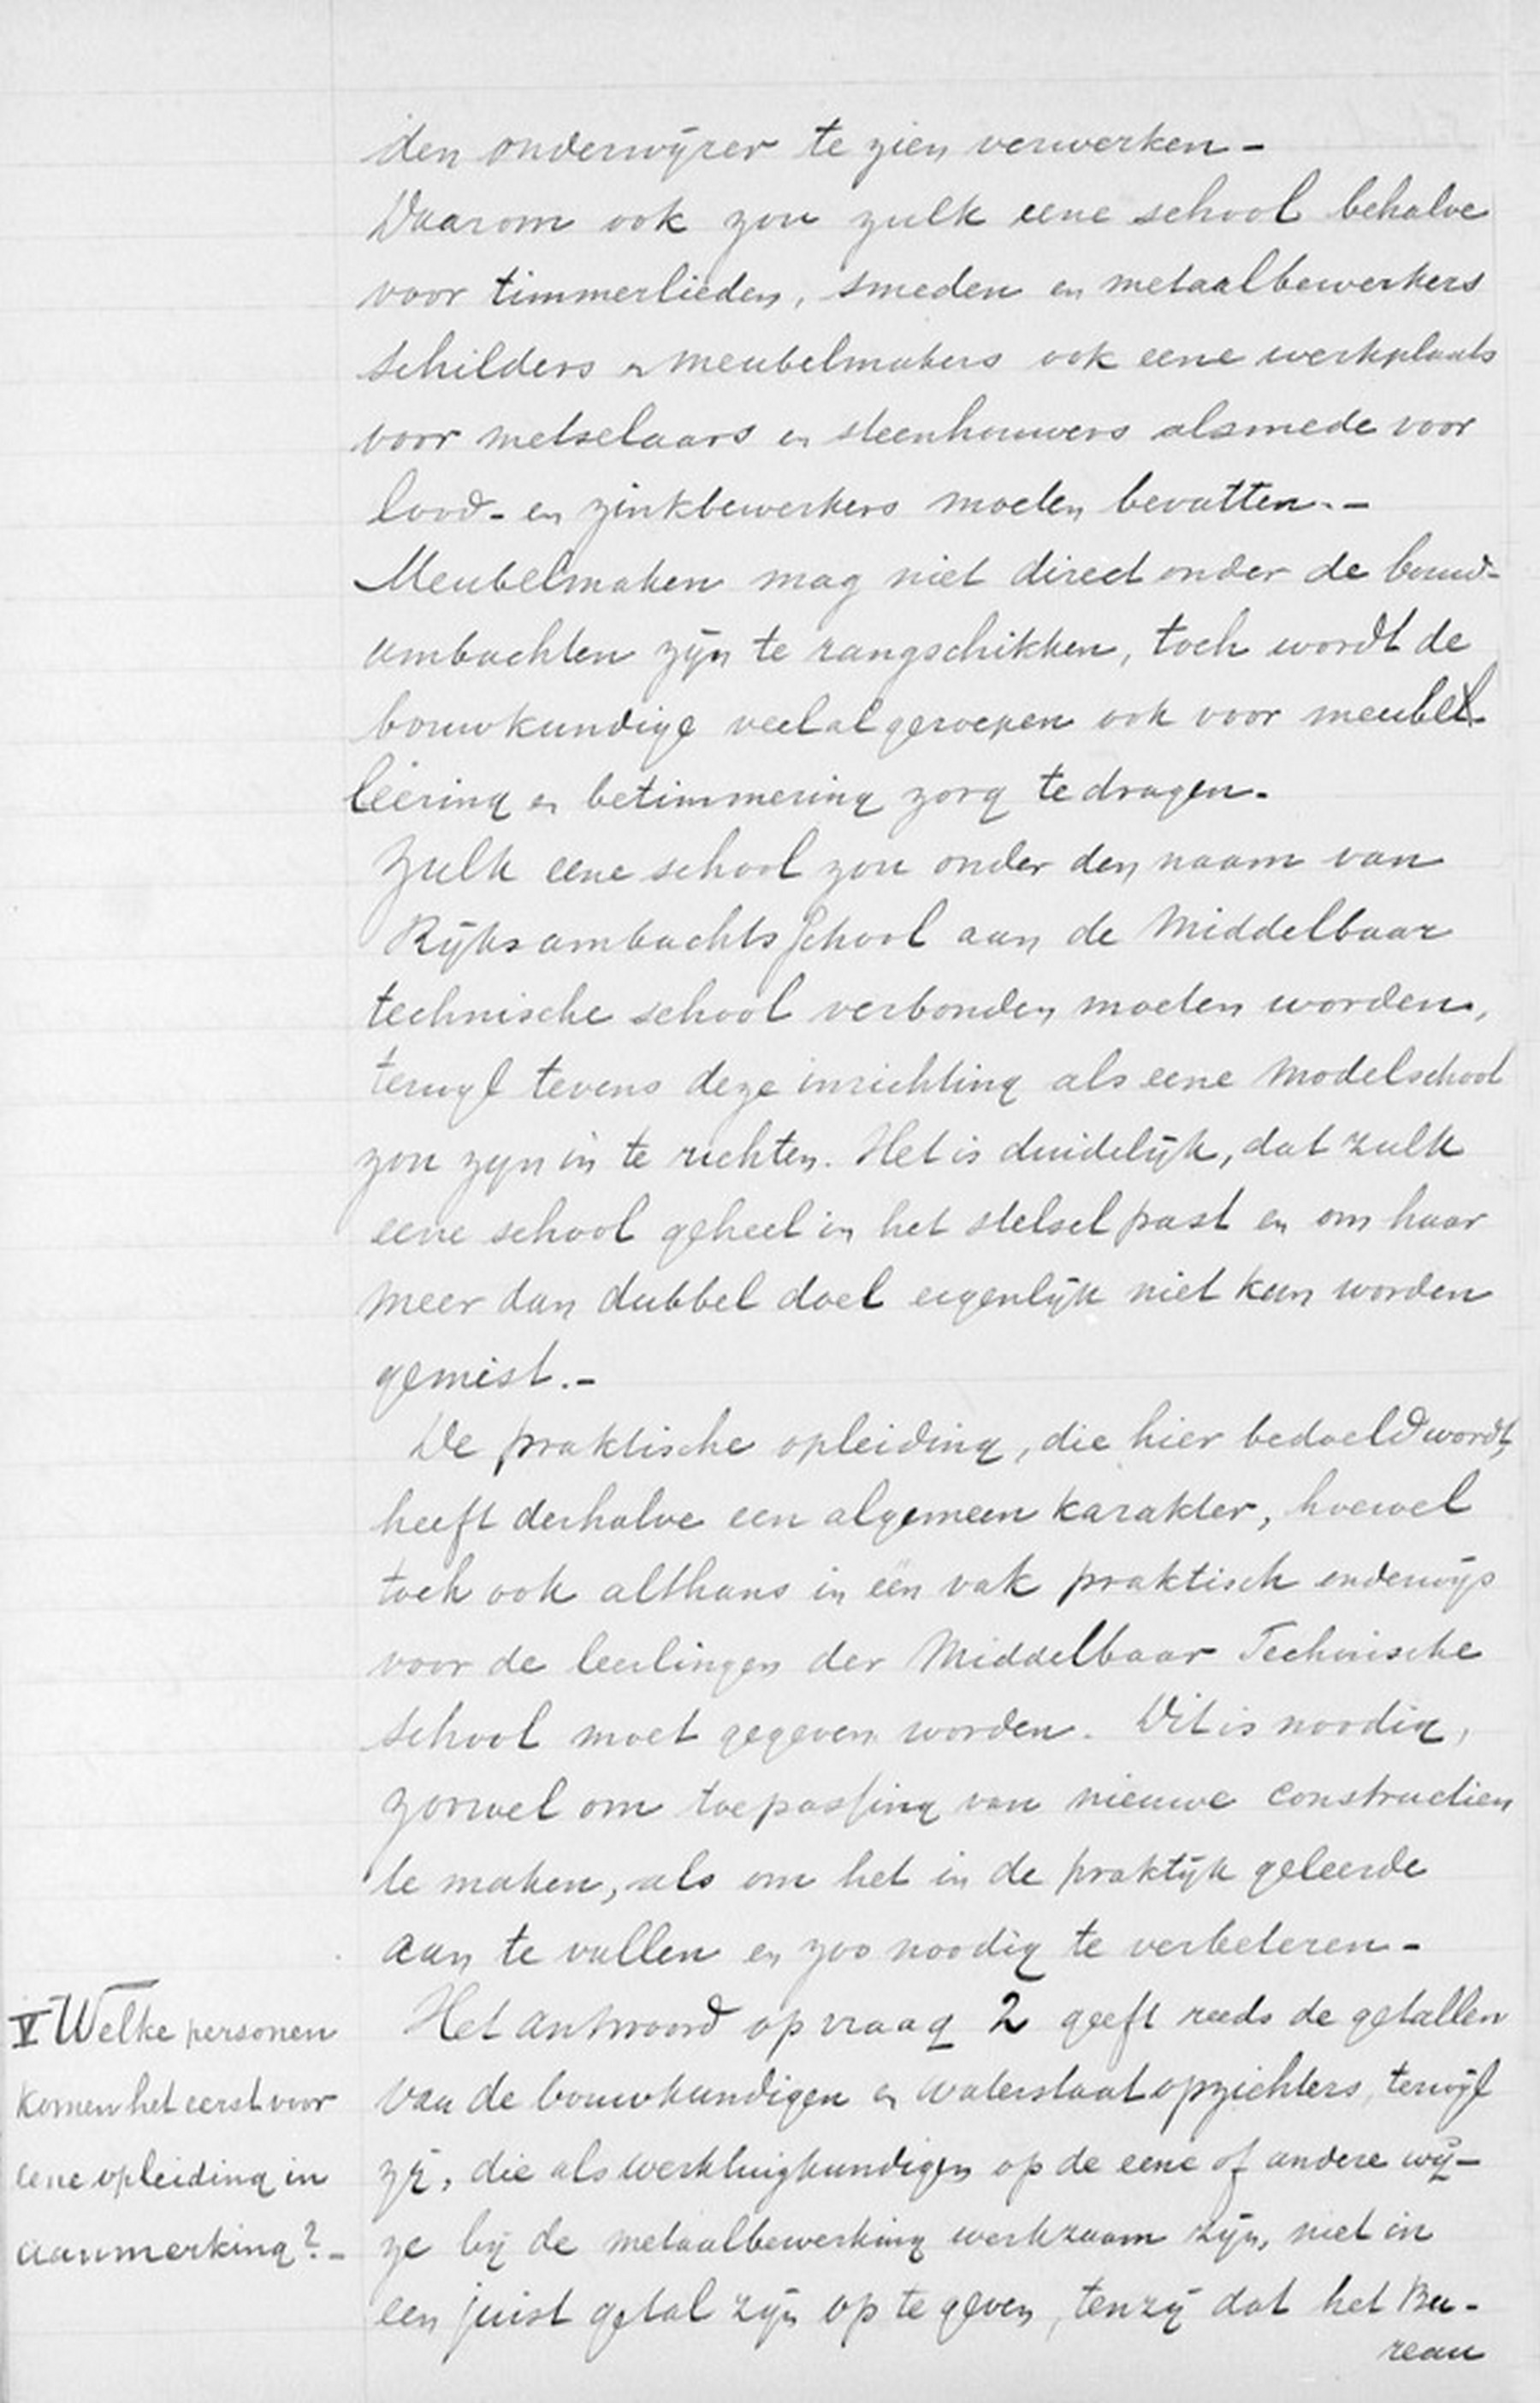 den onderwijzer te zien verwerken -
Daarom ook zou zulk eene school behalve
voor timmerlieden, smeden en metaalbewerkers
schilders en meubelmakers ook eene werkplaats
voor metselaars en steenhouwers alsmede voor
lood- en zinkbewerkers moeten bevatten.-
Meubelmaken mag niet direct onder de bouw-
ambachten zijn te rangschikken, toch wordt de
bouwkundige veelal geroepen ook voor meube-
leering en betimmering zorg te dragen.
Zulk eene school zou onder den naam van
Rijksambachtsschool aan de Middelbaar
technische school verbonden moeten worden,
terwijl tevens deze inrichting als eene modelschool
zou zijn in te richten. Het is duidelijk, dat zulk
eene school geheel in het stelsel past en om haar
meer dan dubbel doel eigenlijk niet kan worden
gemist.-
De praktische opleiding, die hier bedoeld wordt,
heeft derhalve een algemeen karakter, hoewel
toch ook althans in één vak praktisch onderwijs
voor de leerlingen der Middelbaar Technische
school moet gegeven worden. Dit is noodig,
zoowel om toepassing van nieuwe constructien
te maken, als om het in de praktijk geleerde
aan te vullen en zoo noodig te verbeteren -
V Welke personen
komen het eerst voor
eene opleiding in
aanmerking?-
Het antwoord op vraag 2 geeft reeds de getallen
van de bouwkundigen en waterstaatopzichters, terwijl
zij, die als werktuigkundigen op de eene of andere wij-
ze bij de metaalbewerking werkzaam zijn, niet in
een juist getal zijn op te geven, tenzij dat het Bu-
reau